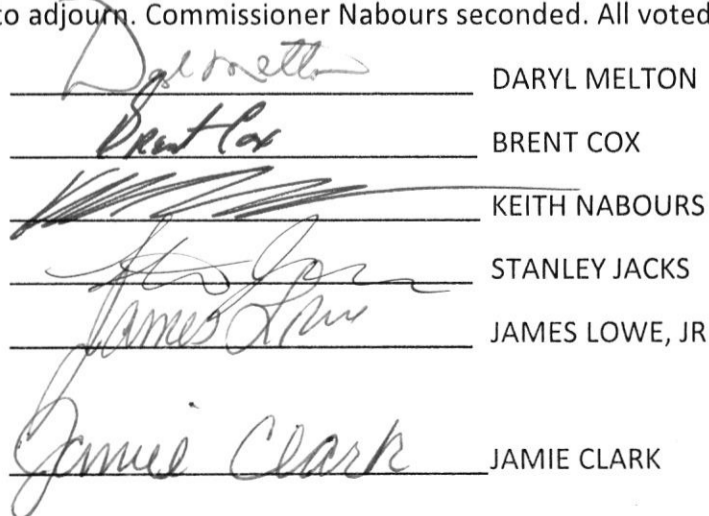 to adjourn. Commissioner Nabours seconded. All voted
Daryl Melton DARYL MELTON
Brent Cox BRENT COX
KEITH NABOURS
STANLEY JACKS
James Lowe JAMES LOWE, JR
Jamie Clark JAMIE CLARK